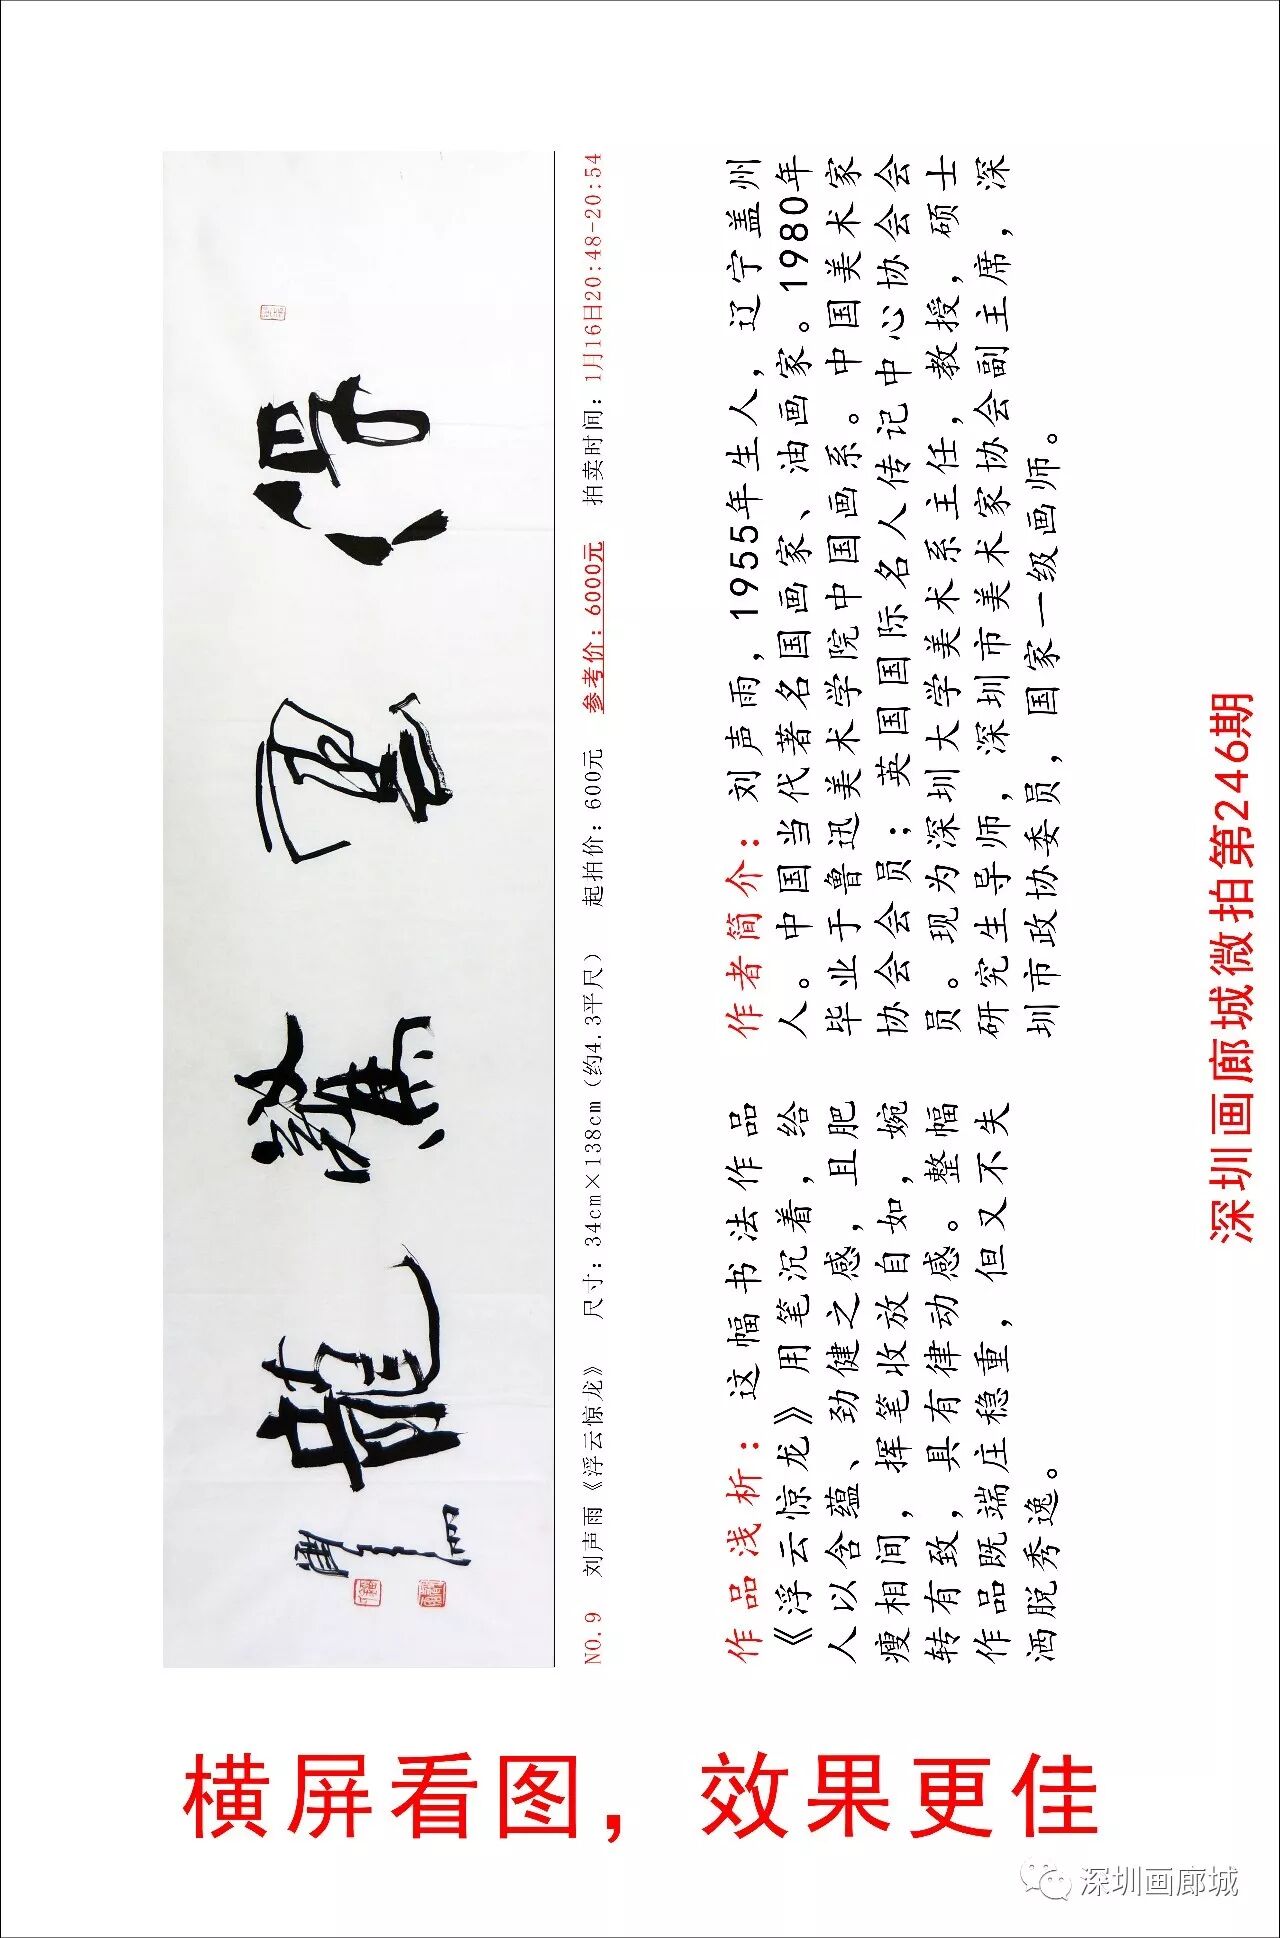 浮云惊龙
声雨
NO.9 刘声雨《浮云惊龙》 尺寸：34cm×138cm（约4.3平尺） 起拍价：600元 参考价：6000元 拍卖时间：1月16日20:48-20:54
作品浅析：这幅书法作品
《浮云惊龙》用笔沉着，给
人以含蕴、劲健之感，且肥
瘦相间，挥笔收放自如，婉
转有致，具有律动感。整幅
作品既端庄稳重，但又不失
洒脱秀逸。
作者简介：刘声雨，1955年生人，辽宁盖州
人。中国当代著名国画家、油画家。1980年
毕业于鲁迅美术学院中国画系。中国美术家
协会会员；英国国际名人传记中心协会会
员。现为深圳大学美术系主任，教授，硕士
研究生导师，深圳市美术家协会副主席，深
圳市政协委员，国家一级画师。
深圳画廊城微拍第246期
横屏看图，效果更佳
深圳画廊城